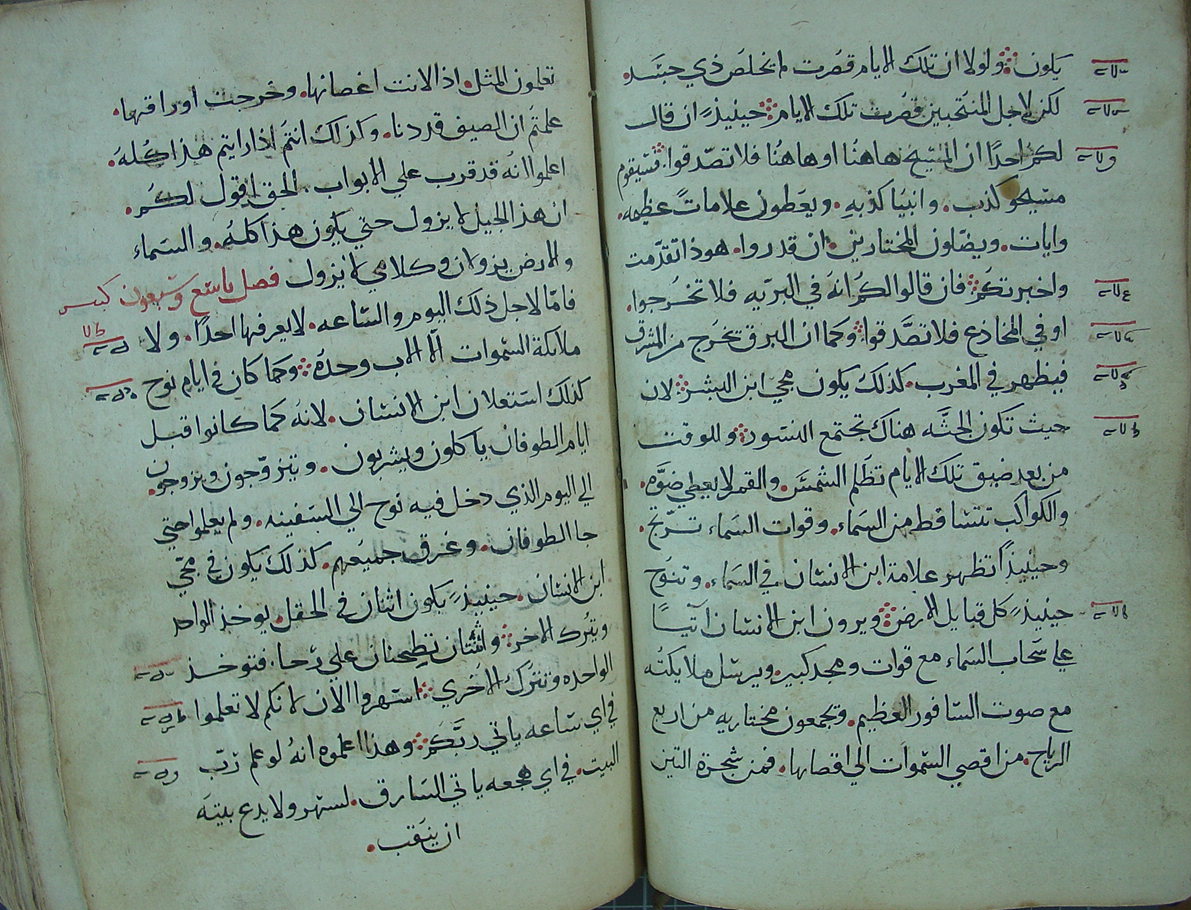 يكون ولولا ان تلك الايام قصرت لم يخلص ذي جسد
لكن لاجل المنتخبين قصرت تلك الايام حينيذ ان قال
لكم احدًا ان المسيح هاهنا او هاهنا فلا تصدقوا فسيقوم
مسيحو كذب وانبيا كذبه ويعطون علاماتً عظيمه
وايات ويضلون المختارين ان قدروا هوذا تقدمت
واخبرتكم فان قالوا لكم انه في البريه فلا تخرجوا
او في المخادع فلا تصدقوا وكما ان البرق يخرج من المشرق
فيظهر في المغرب كذلك يكون مجي ابن البشر لان
حيث تكون الجثه هناك تجتمع النسور وللوقت
من بعد ضيق تلك الايام تظلم الشمس والقمر لا يعطي ضوه
والكواكب تتساقط من السماء وقوات السماء ترتج
وحينيذًا تظهر علامة ابن الانسان في السماء وتنوح
حينيذٍ كل قبايل الارض ويرون ابن الانسان آتيًا
علي سحاب السماء مع قوات ومجد كبير ويرسل ملايكته
مع صوت السافور العظيم ويجمعون مختاريه من اربع
الرياح من اقصي السموات الي اقصاها فمن شجرة التين
تعلمون المثل اذا لانت اغصانها وخرجت اوراقها
علمتم ان الصيف قد دنا وكذلك انتم اذا رايتم هذا كله
اعلموا انه قد قرب علي الابواب الحق اقول لكم
ان هذا الجيل لا يزول حتي يكون هذا كله والسماء
والارض يزولان وكلامي لا يزول فصل تاسع وسبعون كبير
فامّا لاجل ذلك اليوم والساعه لا يعرفها احدًا ولا
ملايكة السموات الّا الاب وحده وكما كان في ايام نوح
كذلك استعلان ابن الانسان لانه كما كانوا قبل
ايام الطوفان ياكلون ويشربون ويتزوجون ويزوجون
الي اليوم الذي دخل فيه نوح الي السفينه ولم يعلموا حتي
جا الطوفان وغرق جميعهم كذلك يكون في مجي
ابن الانسان حينيذٍ يكون اثنان في الحقل يوخذ الواحد
ويترك الاخر واثنتان تطحنان علي رحا فتوخذ
الواحده وتترك الاخري اسهروا الآن لانكم لا تعلموا
في اي ساعه ياتي ربكم وهذا اعلموه انه لو علم رب
البيت في اي هجعه ياتي السارق لسهر ولا يدع بيته
ان ينقب